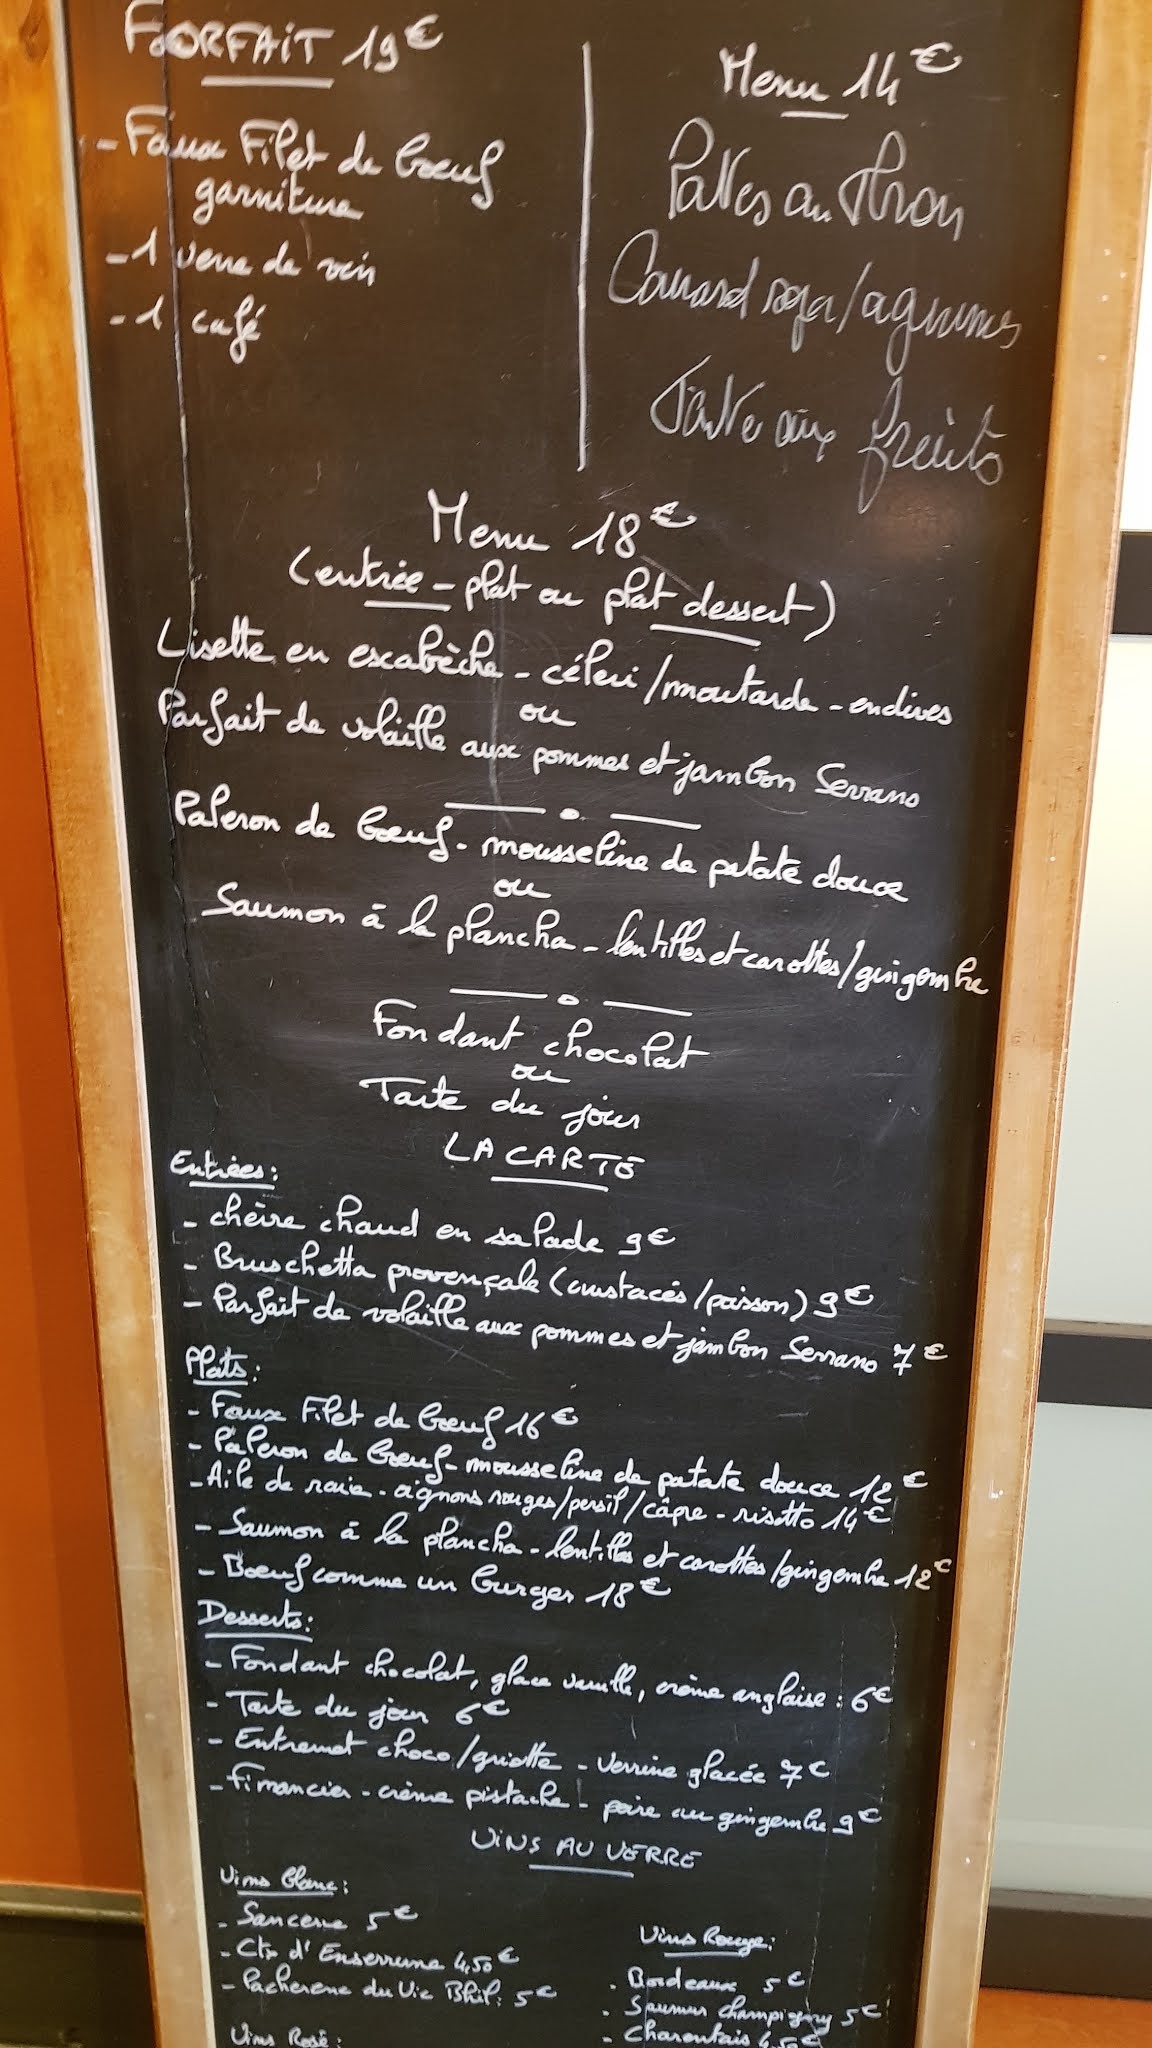 FORFAIT 19€
- Faux Filet de bœuf
garniture
- 1 verre de vin
- 1 café
Menu 14€
Pates au Thon
Canard soja/agrumes
Tarte aux fruits
Menu 18€
(entrée - plat ou plat dessert)
Lisette en escabèche - céleri/moutarde - endives
ou
Parfait de volaille aux pommes et jambon Serrano
Paleron de bœuf - mousseline de patate douce
ou
Saumon à la plancha - lentilles et carottes/gingembre
Fondant chocolat
ou
Tarte du jour
LA CARTE
Entrées:
- chèvre chaud en salade 9€
- Bruschetta provençale (crustacés/poisson) 9€
- Parfait de volaille aux pommes et jambon Serrano 7€
Plats:
- Faux Filet de bœuf 16€
- Paleron de bœuf - mousseline de patate douce 12€
- Aile de raie - oignons rouges/persil/câpre - risotto 14€
- Saumon à la plancha - lentilles et carottes/gingembre 12€
- Bœuf comme un burger 18€
Desserts:
- Fondant chocolat, glace vanille, crème anglaise : 6€
- Tarte du jour 6€
- Entremet choco/griotte - verrine glacée 7€
- Financier - crème pistache - poire au gingembre 9€
VINS AU VERRE
Vins blanc:
- Sancerre 5€
- Ctx d'Enserrune 4,50€
- Pacherenc du Vic Bhil: 5€
Vins Rosé:
Vins Rouge:
- Bordeaux 5€
- Saumur champigny 5€
- Charentais 4,50€